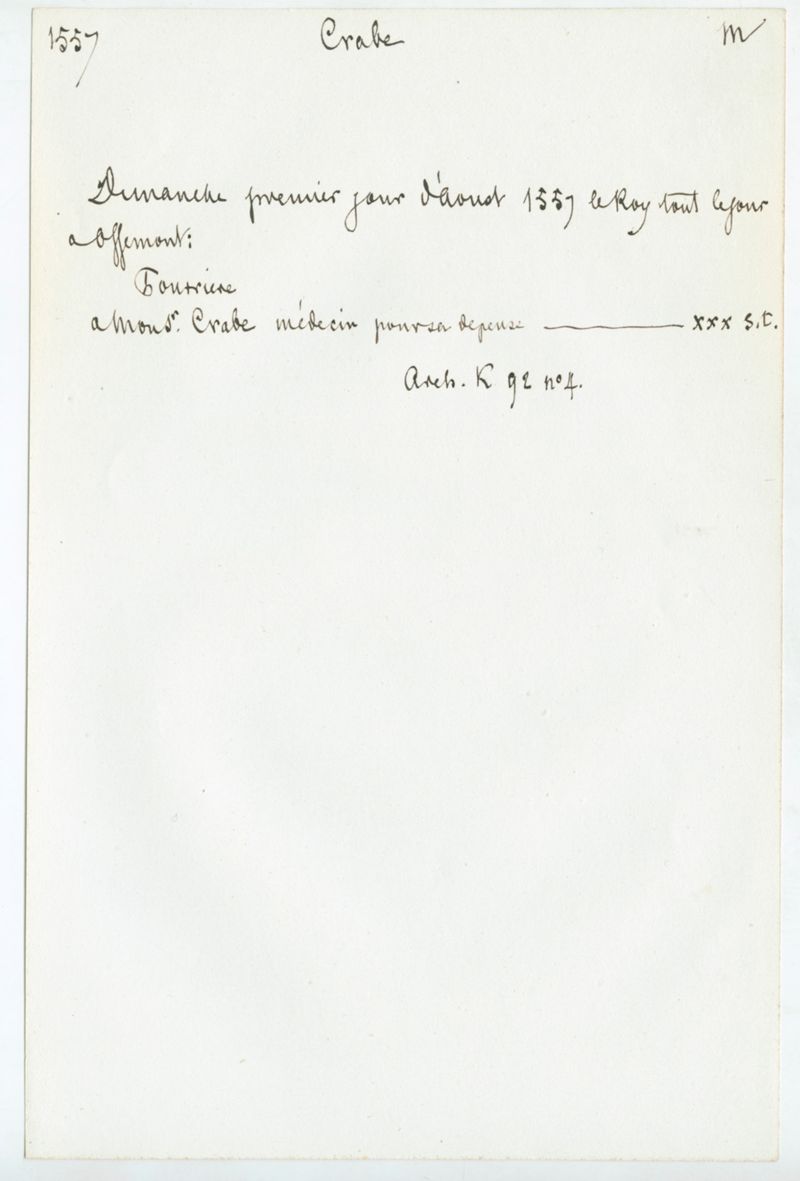 1557 Crabe M
Dimanche premier jour d'Aoust 1557 le Roy tout le jour
a Offemont:
Fourriere
a Mons.r Crabe médecin pour sa depense ——— xxx s.t.
Arch. K 92 n° 4.